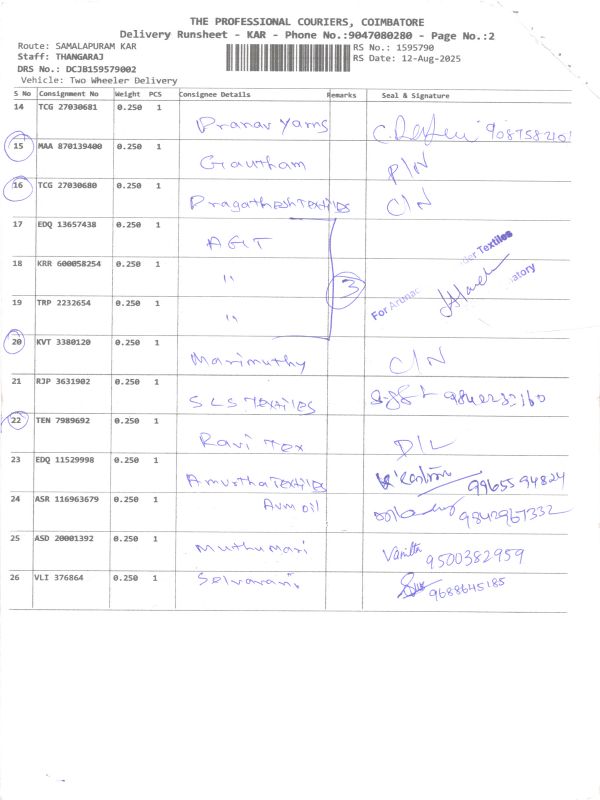 THE PROFESSIONAL COURIERS, COIMBATORE
Delivery Runsheet - KAR - Phone No.:9047080280 - Page No.:2
Route: SAMALAPURAM KAR RS No.: 1595790
Staff: THANGARAJ RS Date: 12-Aug-2025
DRS No.: DCJB159579002
Vehicle: Two Wheeler Delivery
S No Consignment No Weight PCS Consignee Details Remarks Seal & Signature
14 TCG 27030681 0.250 1 Pranav Yarns
15 MAA 870139400 0.250 1 Gautham P/N
16 TCG 27030680 0.250 1 Pragathesh Textiles C/N
17 EDQ 13657438 0.250 1 AGT
18 KRR 600058254 0.250 1 " 3 For Textiles
19 TRP 2232654 0.250 1 "
20 KVT 3380120 0.250 1 Marimuthy C/N
21 RJP 3631902 0.250 1 SLS Textiles
22 TEN 7989692 0.250 1 Ravi Tex D/L
23 EDQ 11529998 0.250 1 Amurtha Textiles 9965594824
24 ASR 116963679 0.250 1 Avm oil 9842967332
25 ASD 20001392 0.250 1 Muthumari Vanitha 9500382959
26 VLI 376864 0.250 1 Selvarani 9688645185